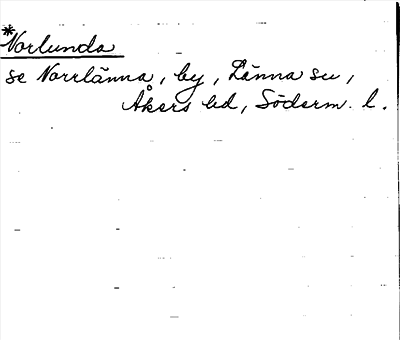 *Norlunda
se Norrlänna, by, Länna sn,
Åkers hd, Söderm. l.